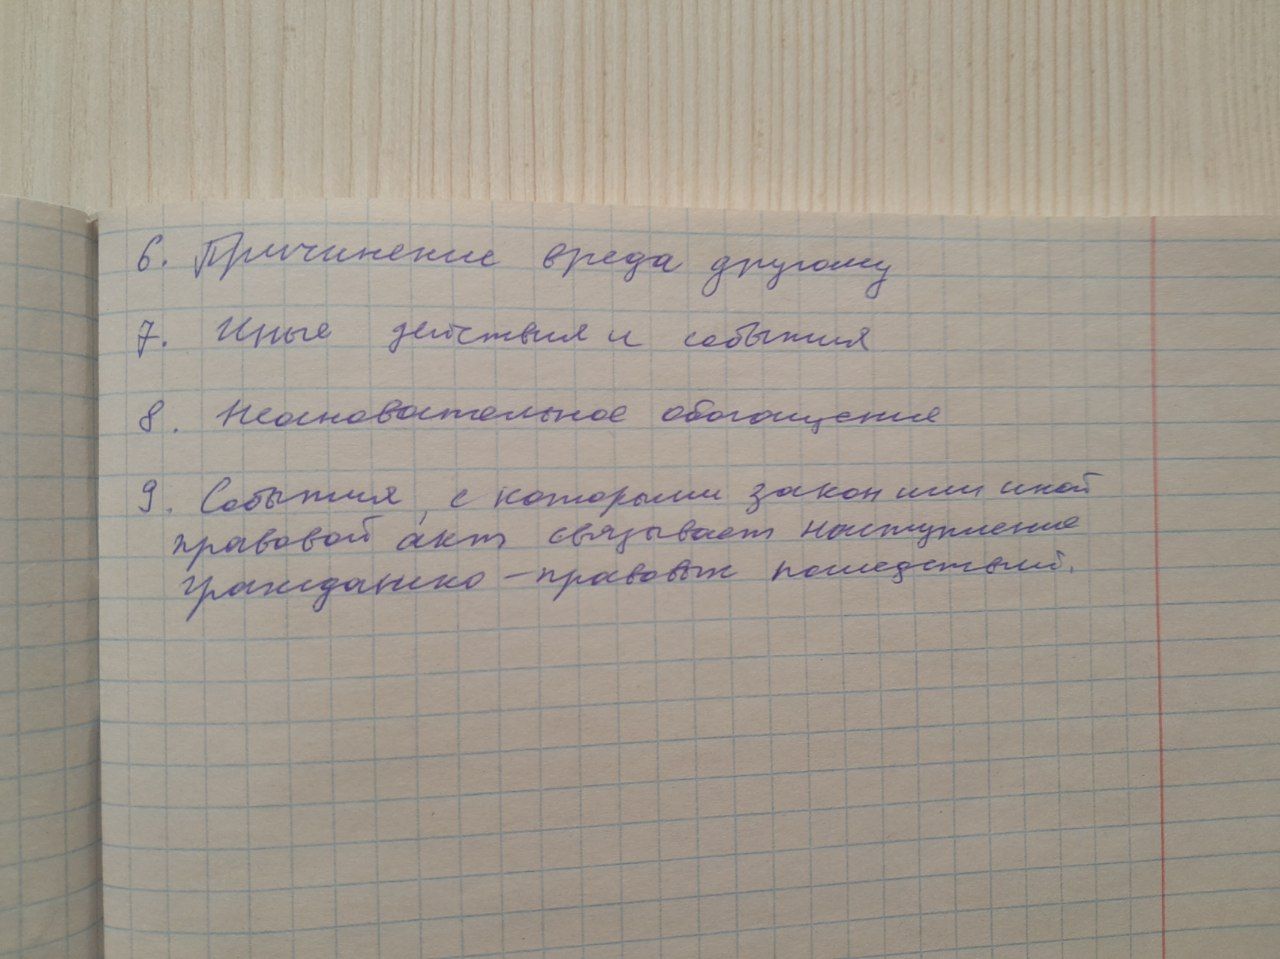 6. Причинение вреда другому
7. Иные действия и события
8. Неосновательное обогащение
9. События, с которыми закон или иной
правовой акт связывает наступление
гражданско-правовых последствий.